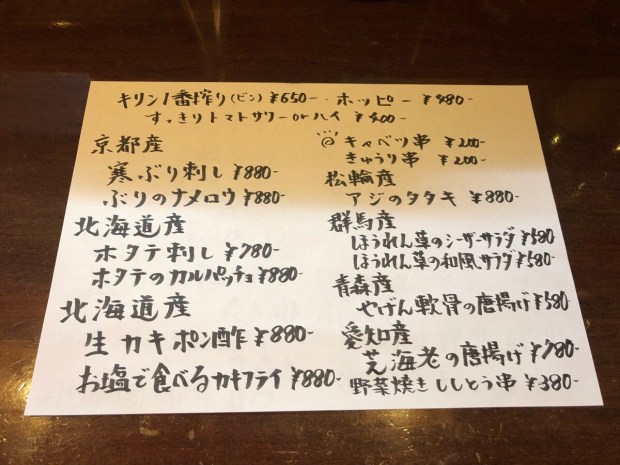 キリン1番搾り(ビン)¥650- ホッピー ¥480-
すっきりトマトサワーorハイ ¥400-
京都産
寒ぶり刺し ¥880-
ぶりのナメロウ ¥880-
北海道産
ホタテ刺し ¥780-
ホタテのカルパッチョ ¥880-
北海道産
生カキポン酢 ¥880-
お塩で食べるカキフライ ¥880-
キャベツ串 ¥200-
きゅうり串 ¥200-
松輪産
アジのタタキ ¥880-
群馬産
ほうれん草のシーザーサラダ ¥580
ほうれん草の和風サラダ ¥580-
青森産
やげん軟骨の唐揚げ ¥580
愛知産
芝海老の唐揚げ ¥780
野菜焼きししとう串 ¥380-